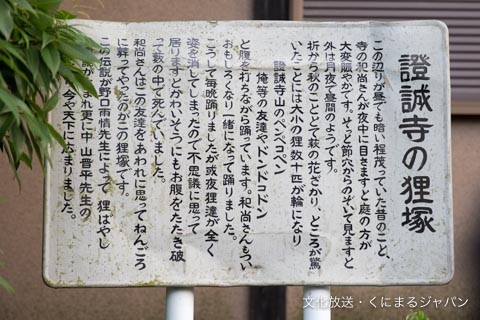 證誠寺の狸塚
この辺りが昼でも暗い程茂っていた昔のこと、
寺の和尚さんが夜中に目さますと庭の方が
大変賑やかです。そっと節穴からのぞいて見ますと
外は月夜で昼間のようです。
折から秋のこととて萩の花ざかり、ところが驚
いたことには大小の狸数十匹が輪になり
證誠寺山のペンペコペン
俺等の友達やドンドコドン
と腹を打ちながら踊っています。和尚さんもつい
おもしろくなり一緒になって踊りました。
こうして毎晩踊りましたが或夜狸達が全く
姿を消してしまったので不思議に思って
居りますとかわいそうにもお腹をたたき破
って萩の中で死んでいました。
和尚さんはこの友達をあわれに思ってねんごろ
に葬ってやったのがこの狸塚です。
この伝説が野口雨情先生によって 狸ばやし
まれ更に中山晋平先生の
今や天下に広まりました。
文化放送・くにまるジャパン